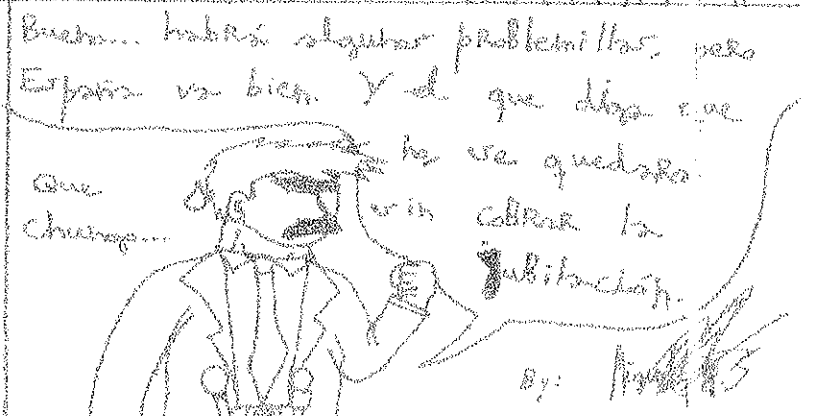 Bueno... habrá algunos problemillas, pero
España va bien. Y el que diga que
no se quedará
sin cobrar la
jubilación.
Que
chungo...
By: